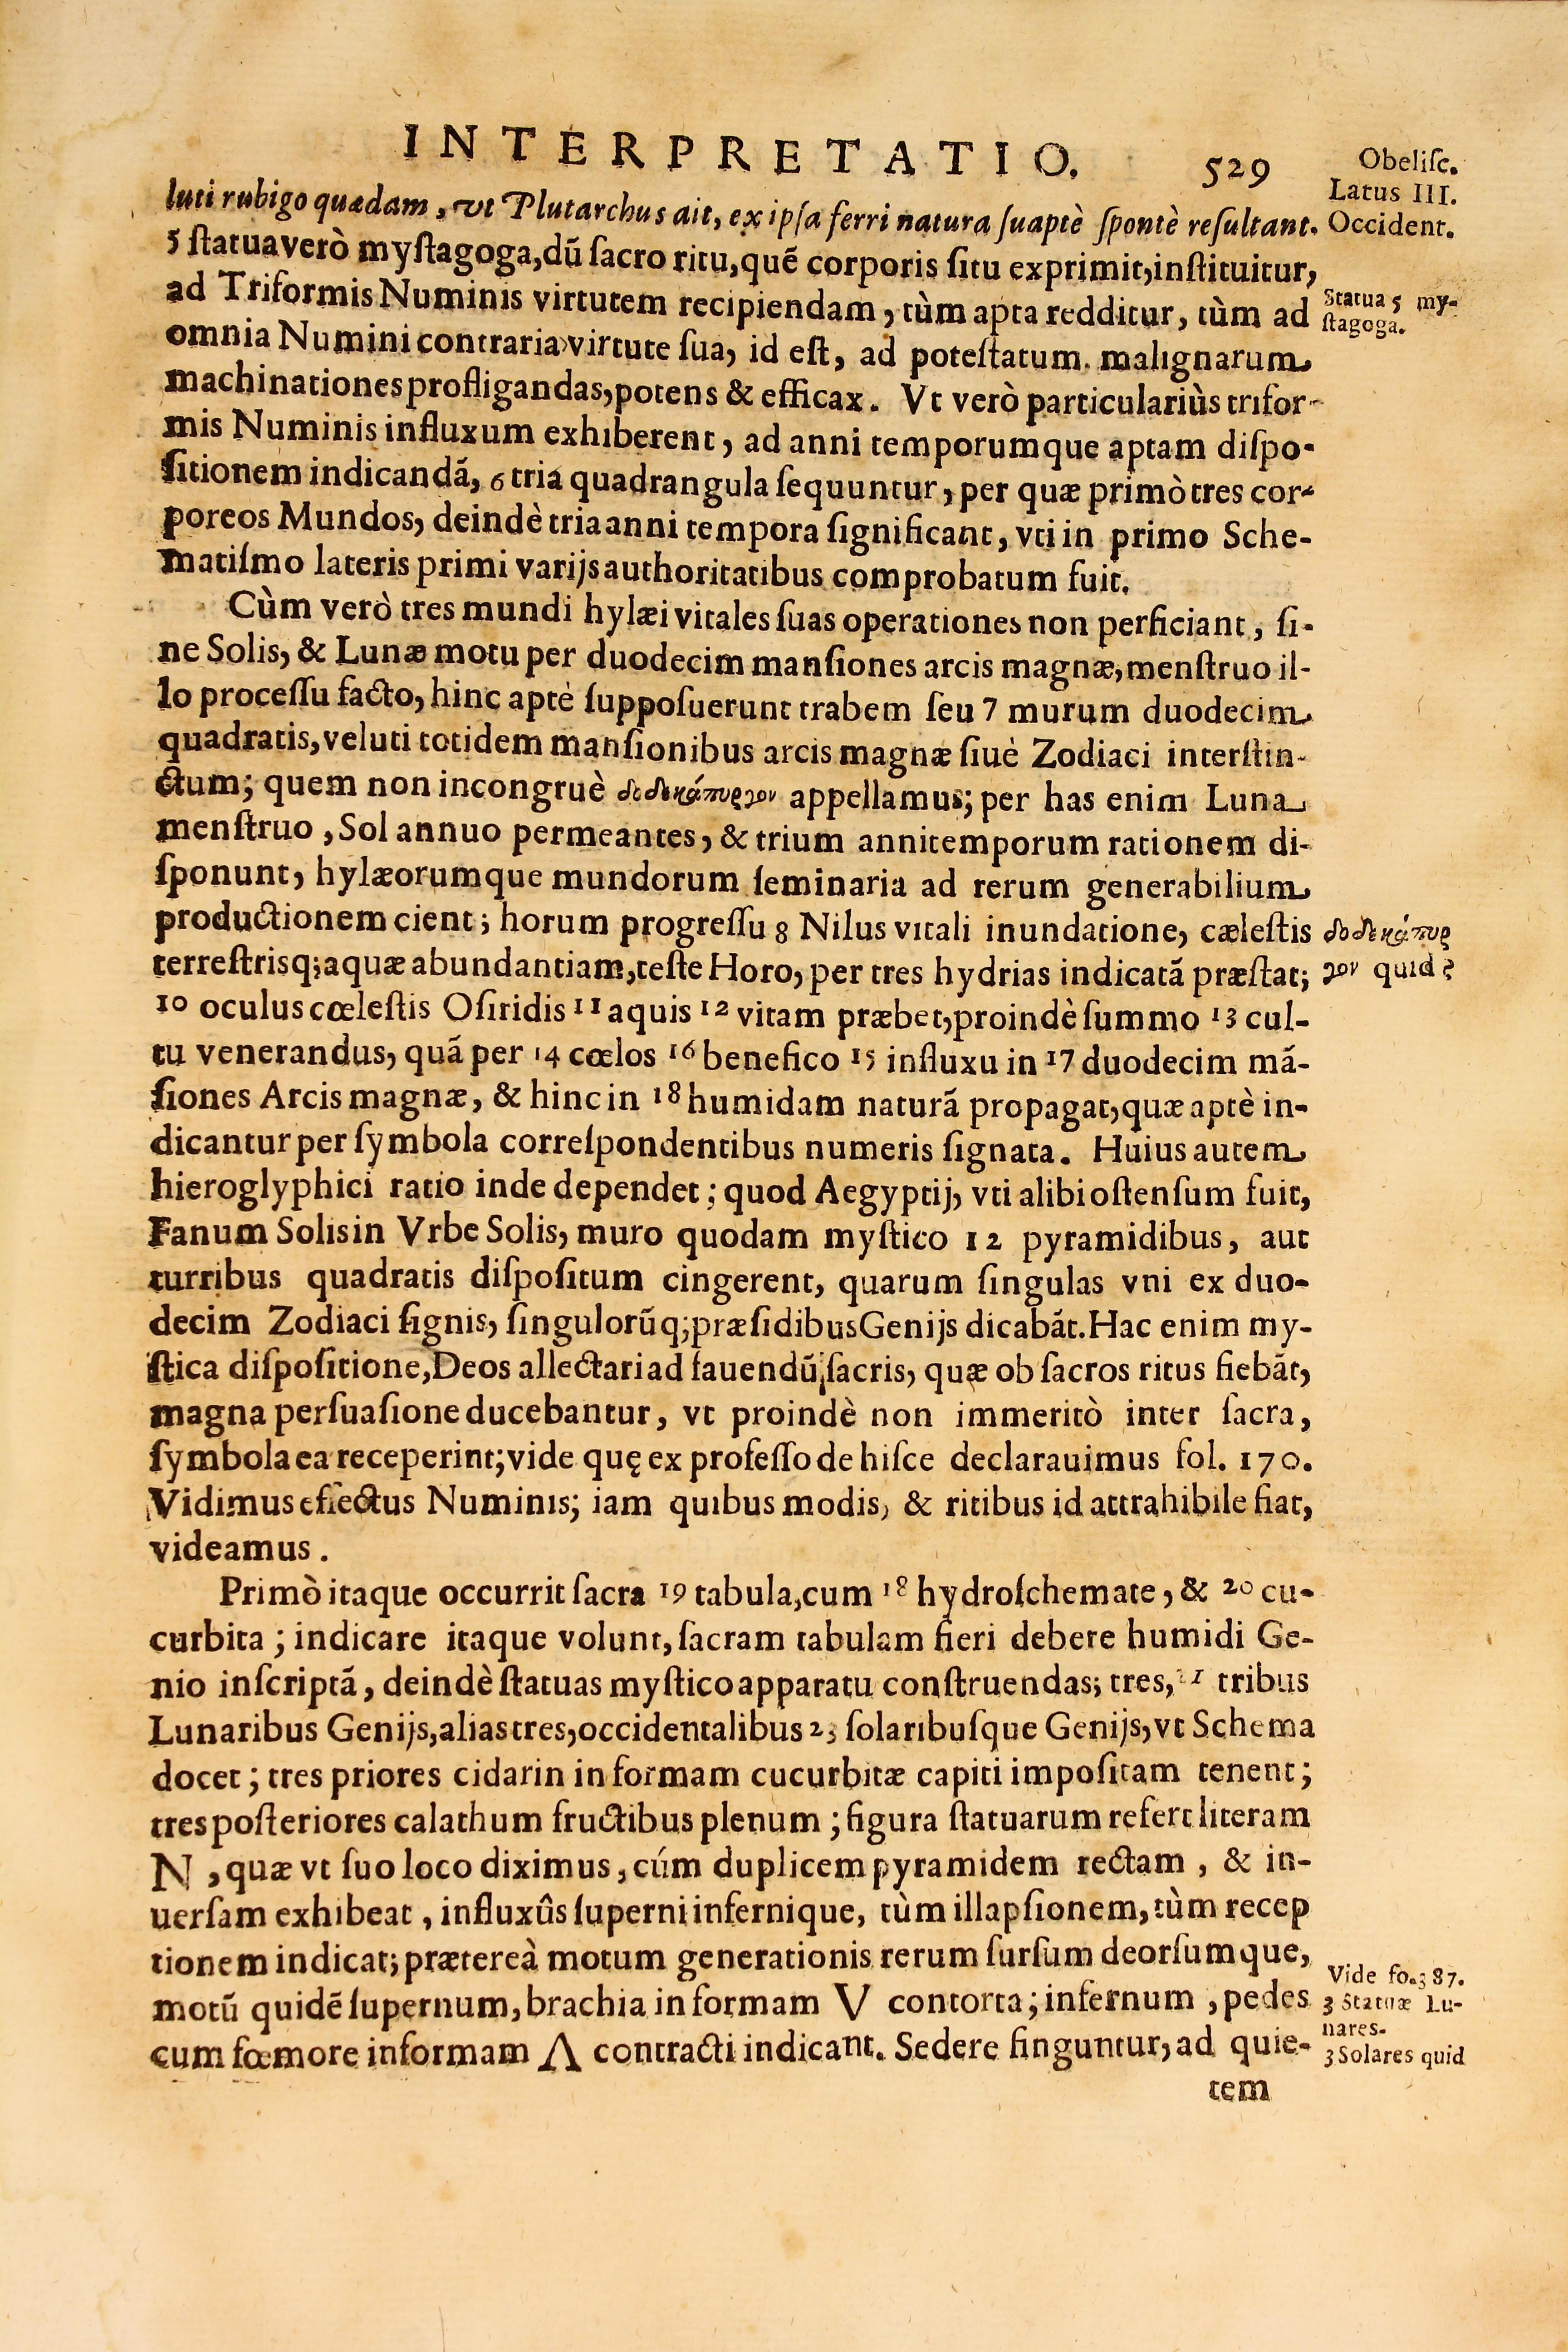 INTERPRETATIO.
529
Obeliſc.
Latus III.
Occident.
luti rubigo quædam, vt Plutarchus ait, ex ipſa ferri natura ſuaptè ſpontè reſultant.
5 ſtatua verò myſtagoga, dũ ſacro ritu, quẽ corporis ſitu exprimit, inſtituitur,
ad Triformis Numinis virtutem recipiendam, tùm apta redditur, tùm ad
Statua 5 my-
ſtagoga.
omnia Numini contraria virtute ſua, id eſt, ad poteſtatum malignarum
machinationes profligandas, potens & efficax. Vt verò particulariùs trifor-
mis Numinis influxum exhiberent, ad anni temporumque aptam diſpo-
ſitionem indicandã, 6 tria quadrangula ſequuntur, per quæ primò tres cor-
poreos Mundos, deindè tria anni tempora ſignificant, vti in primo Sche-
matiſmo lateris primi varijs authoritatibus comprobatum fuit.
Cùm verò tres mundi hylæi vitales ſuas operationes non perficiant, ſi-
ne Solis, & Lunæ motu per duodecim manſiones arcis magnæ, menſtruo il-
lo proceſſu facto, hinc aptè ſuppoſuerunt trabem ſeu 7 murum duodecim
quadratis, veluti totidem manſionibus arcis magnæ ſiuè Zodiaci interſtin-
ctum; quem non incongruè δοδεκάπυργον appellamus; per has enim Luna
menſtruo, Sol annuo permeantes, & trium anni temporum rationem di-
ſponunt, hylæorumque mundorum ſeminaria ad rerum generabilium
productionem cient; horum progreſſu 8 Nilus vitali inundatione, cæleſtis
δοδεκάπυρ
γον quid?
terreſtrisq; aquæ abundantiam, teſte Horo, per tres hydrias indicatã præſtat;
10 oculus cœleſtis Oſiridis 11 aquis 12 vitam præbet, proindè ſummo 13 cul-
tu venerandus, quã per 14 cœlos 16 benefico 15 influxu in 17 duodecim mã-
ſiones Arcis magnæ, & hinc in 18 humidam naturã propagat, quæ aptè in-
dicantur per ſymbola correſpondentibus numeris ſignata. Huius autem
hieroglyphici ratio inde dependet; quod Aegyptij, vti alibi oſtenſum fuit,
Fanum Solis in Vrbe Solis, muro quodam myſtico 12 pyramidibus, aut
turribus quadratis diſpoſitum cingerent, quarum ſingulas vni ex duo-
decim Zodiaci ſignis, ſingulorũq; præſidibus Genijs dicabãt. Hac enim my-
ſtica diſpoſitione, Deos allectari ad fauendũ ſacris, quæ ob ſacros ritus fiebãt,
magna perſuaſione ducebantur, vt proindè non immeritò inter ſacra,
ſymbola ea receperint; vide quę ex profeſſo de hiſce declarauimus fol. 170.
Vidimus effectus Numinis; iam quibus modis, & ritibus id attrahibile fiat,
videamus.
Primò itaque occurrit ſacra 19 tabula, cum 18 hydroſchemate, & 20 cu-
curbita; indicare itaque volunt, ſacram tabulam fieri debere humidi Ge-
nio inſcriptã, deindè ſtatuas myſtico apparatu conſtruendas; tres, 21 tribus
Lunaribus Genijs, alias tres, occidentalibus 23 ſolaribuſque Genijs, vt Schema
docet; tres priores cidarin in formam cucurbitæ capiti impoſitam tenent;
tres poſteriores calathum fructibus plenum; figura ſtatuarum refert literam
N, quæ vt ſuo loco diximus, cúm duplicem pyramidem rectam, & in-
uerſam exhibeat, influxûs ſuperni infernique, tùm illapſionem, tùm recep
tionem indicat; prætereà motum generationis rerum ſurſum deorſumque,
motũ quidẽ ſupernum, brachia in formam V contorta; infernum, pedes
cum fœmore in formam Λ contracti indicant. Sedere finguntur, ad quie-
Vide fo. 387.
3 Statuæ Lu-
nares.
3 Solares quid
tem